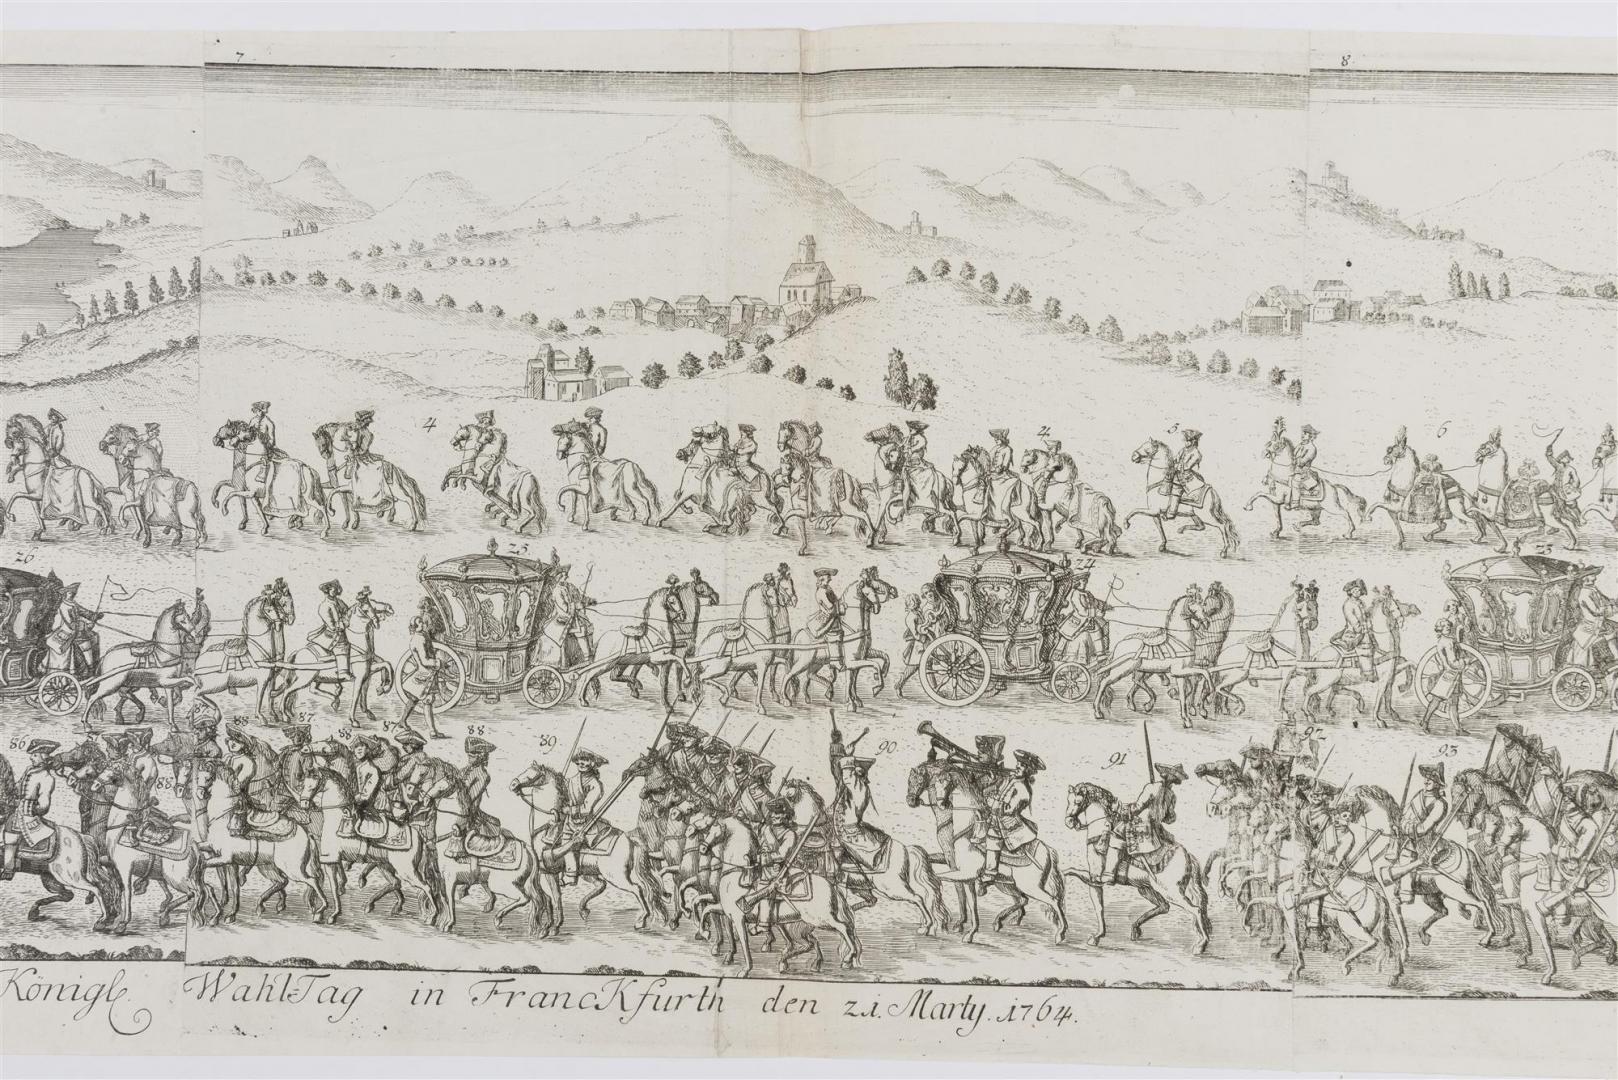 7.
8.
4
4.
5
6
26
25
24
23
86
87
88
88
87
88
87
88
89
90.
91
92
93
Königl. Wahl-Tag in Franckfurth den 21. Marty. 1764.